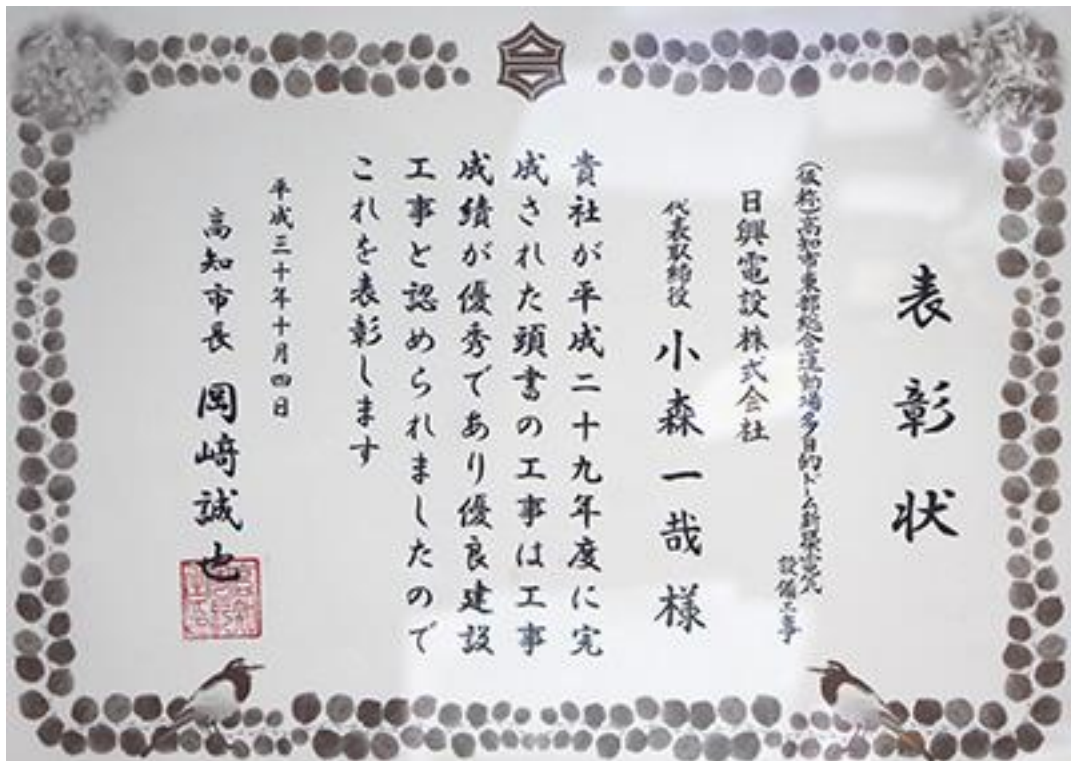 表彰状
(仮称)高知市東部総合運動場多目的ドーム新築電気
設備工事
日興電設株式会社
代表取締役 小森一哉様
貴社が平成二十九年度に完
成された頭書の工事は工事
成績が優秀であり優良建設
工事と認められましたので
これを表彰します
平成三十年十月四日
高知市長 岡﨑誠也